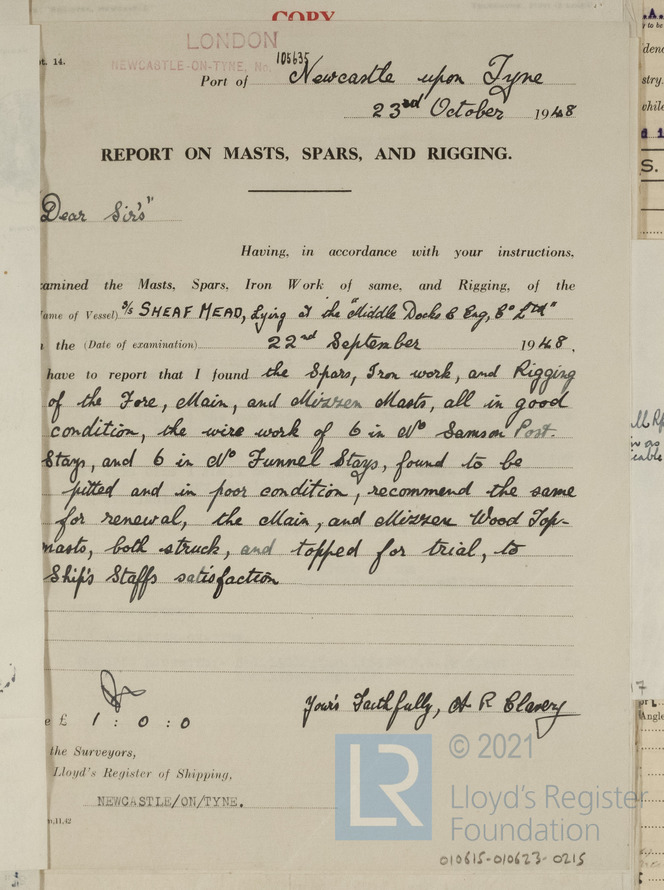 COPY
LONDON
t. 14.
NEWCASTLE-ON-TYNE, No. 105635
Port of Newcastle upon Tyne
23rd October 1948
REPORT ON MASTS, SPARS, AND RIGGING.
"Dear Sir's"
Having, in accordance with your instructions,
xamined the Masts, Spars, Iron Work of same, and Rigging, of the
ame of Vessel) S/S SHEAF MEAD, Lying at the "Middle Docks & Eng, Co Ltd"
the (Date of examination) 22nd September 1948.
have to report that I found the Spars, Iron work, and Rigging
of the Fore, Main, and Mizzen Masts, all in good
condition, the wire work of 6 in No Samson Post.
Stays, and 6 in No Funnel Stays, found to be
pitted and in poor condition, recommend the same
for renewal, the Main, and Mizzen Wood Top-
masts, both struck, and topped for trial, to
Ship's Staffs satisfaction
e £ 1 : 0 : 0
Your's Faithfully, A R Clavery
the Surveyors,
Lloyd's Register of Shipping,
NEWCASTLE/ON/TYNE.
m,11,42
LR
© 2021
Lloyd's Register
Foundation
010615-010623-0215